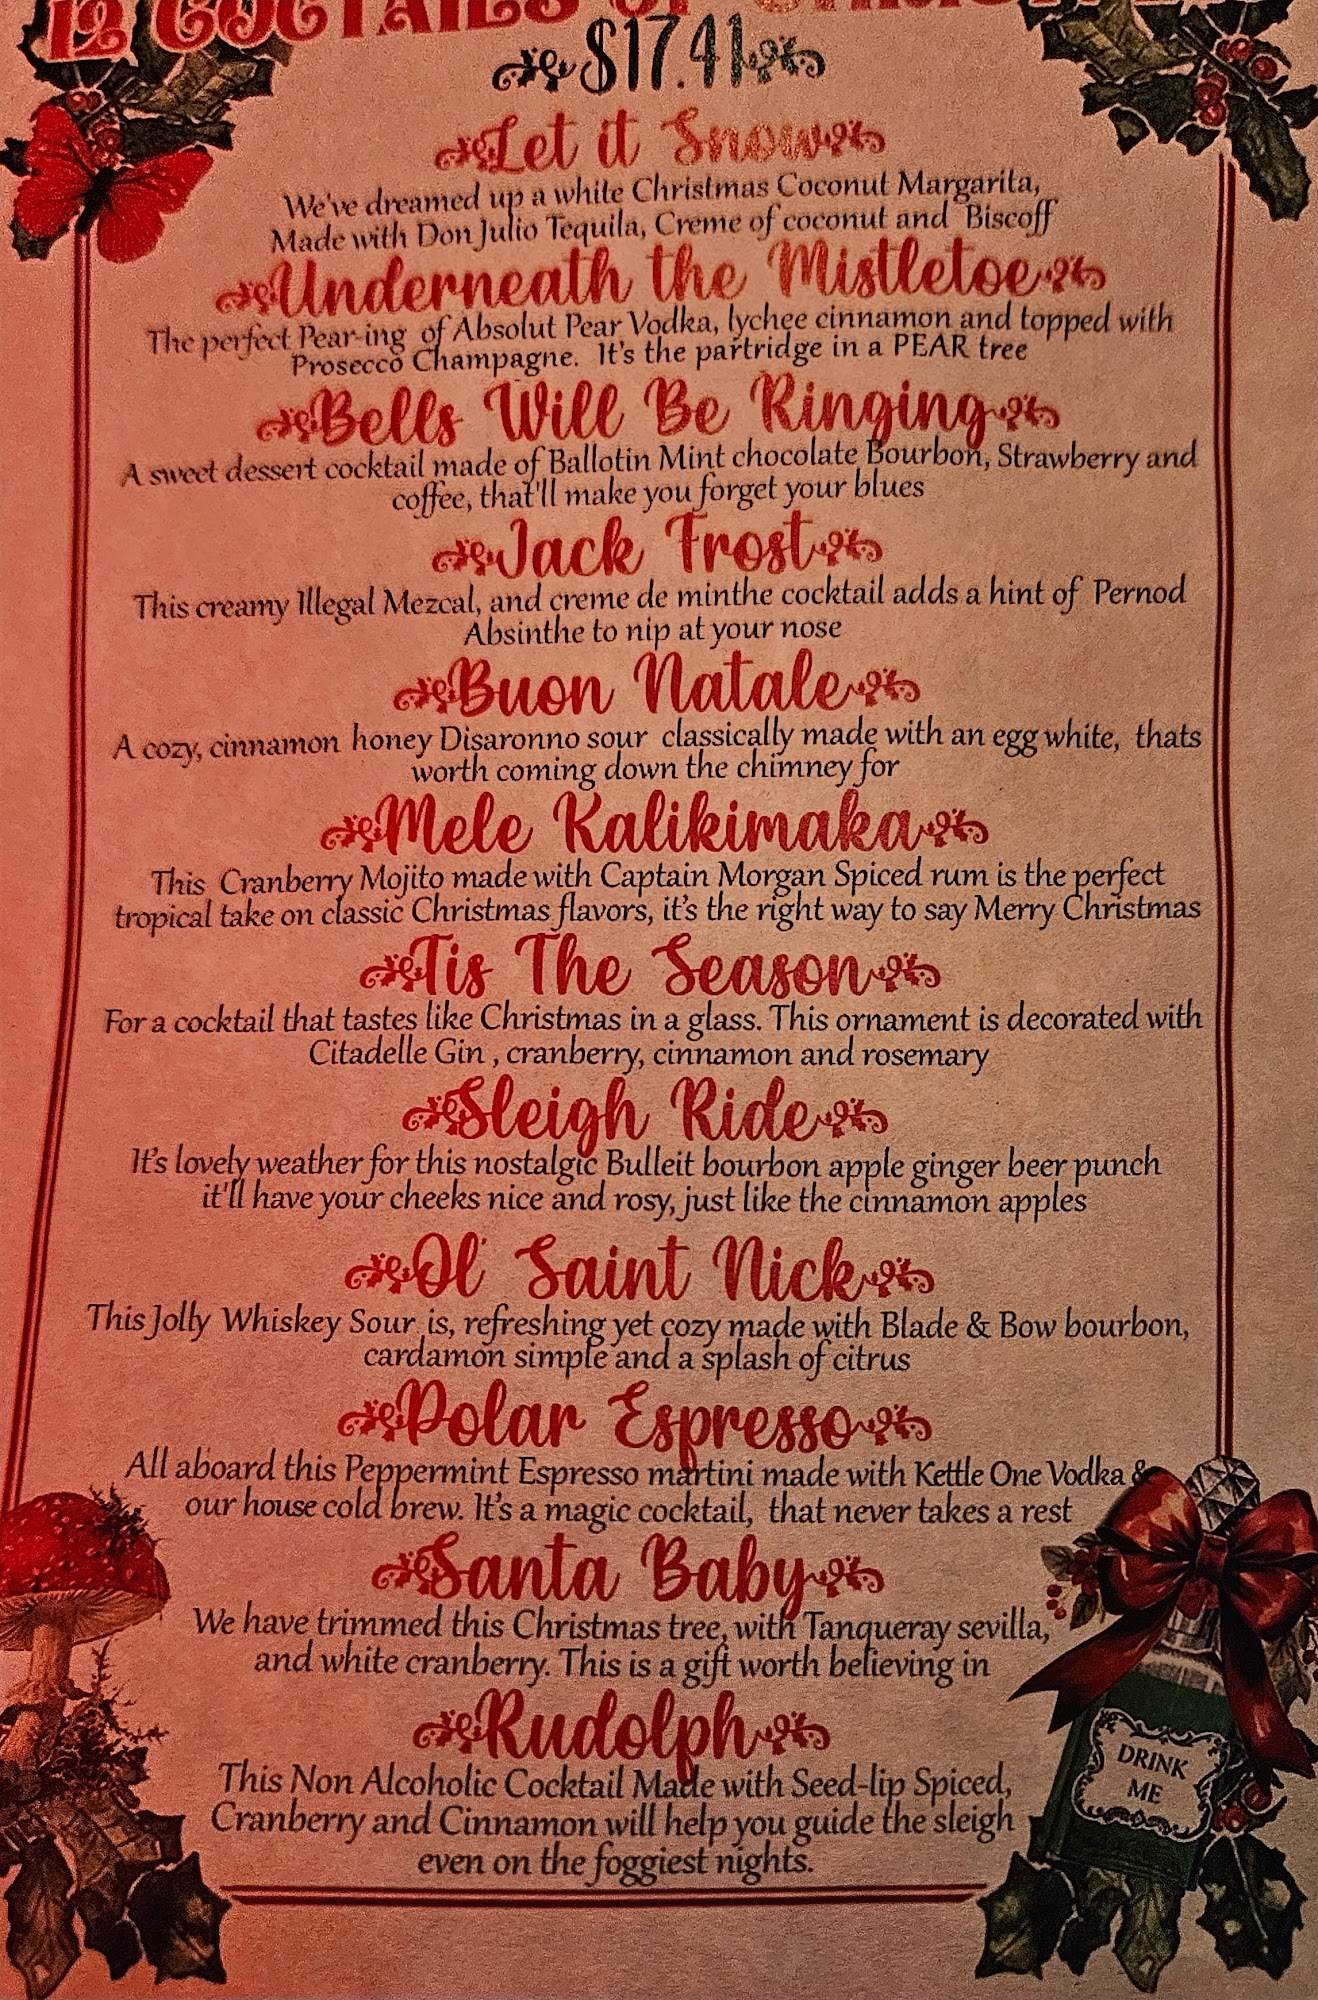 12 COCTAILS OF CHRISTMAS
$17.41
Let it Snow
We've dreamed up a white Christmas Coconut Margarita,
Made with Don Julio Tequila, Creme of coconut and Biscoff
Underneath the Mistletoe
The perfect Pear-ing of Absolut Pear Vodka, lychee cinnamon and topped with
Prosecco Champagne. It's the partridge in a PEAR tree
Bells Will Be Ringing
A sweet dessert cocktail made of Ballotin Mint chocolate Bourbon, Strawberry and
coffee, that'll make you forget your blues
Jack Frost
This creamy Illegal Mezcal, and creme de minthe cocktail adds a hint of Pernod
Absinthe to nip at your nose
Buon Natale
A cozy, cinnamon honey Disaronno sour classically made with an egg white, thats
worth coming down the chimney for
Mele Kalikimaka
This Cranberry Mojito made with Captain Morgan Spiced rum is the perfect
tropical take on classic Christmas flavors, it's the right way to say Merry Christmas
Tis The Season
For a cocktail that tastes like Christmas in a glass. This ornament is decorated with
Citadelle Gin , cranberry, cinnamon and rosemary
Sleigh Ride
It's lovely weather for this nostalgic Bulleit bourbon apple ginger beer punch
it'll have your cheeks nice and rosy, just like the cinnamon apples
Ol' Saint Nick
This Jolly Whiskey Sour is, refreshing yet cozy made with Blade & Bow bourbon,
cardamon simple and a splash of citrus
Polar Espresso
All aboard this Peppermint Espresso martini made with Kettle One Vodka &
our house cold brew. It's a magic cocktail, that never takes a rest
Santa Baby
We have trimmed this Christmas tree, with Tanqueray sevilla,
and white cranberry. This is a gift worth believing in
Rudolph
This Non Alcoholic Cocktail Made with Seed-lip Spiced,
Cranberry and Cinnamon will help you guide the sleigh
even on the foggiest nights.
DRINK
ME